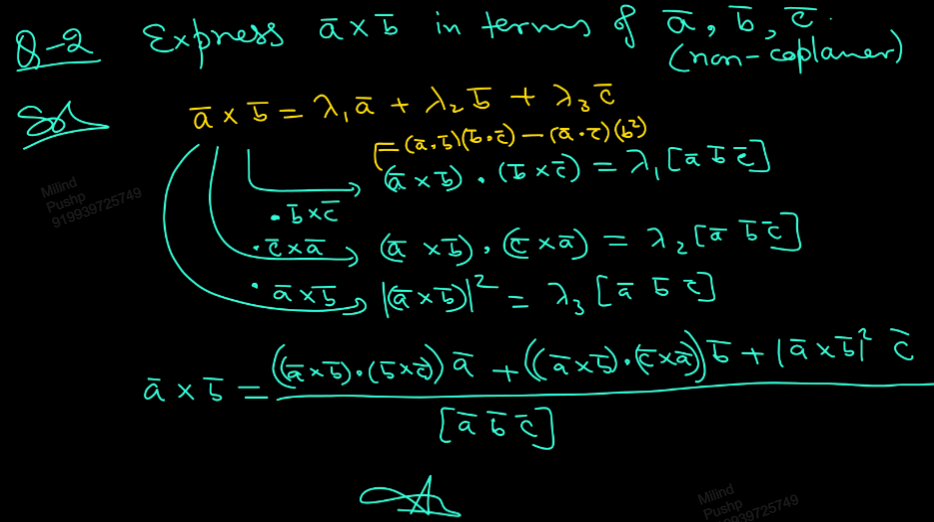 Q-2 Express a̅ × b̅ in terms of a̅, b̅, c̅.
(non-coplaner)
Sol
a̅ × b̅ = λ₁a̅ + λ₂b̅ + λ₃c̅
= (a̅.b̅)(b̅.c̅) − (a̅.c̅)(b²)
(a̅ × b̅) . (b̅ × c̅) = λ₁[a̅ b̅ c̅]
. b̅×c̅
. c̅×a̅ (a̅ × b̅) . (c̅ × a̅) = λ₂[a̅ b̅ c̅]
. a̅×b̅ |(a̅ × b̅)|² = λ₃[a̅ b̅ c̅]
a̅ × b̅ = ((a̅×b̅).(b̅×c̅))a̅ + ((a̅×b̅).(c̅×a̅))b̅ + |a̅×b̅|² c̅
[a̅ b̅ c̅]
Milind
Pushp
919939725749
Milind
Pushp
9939725749